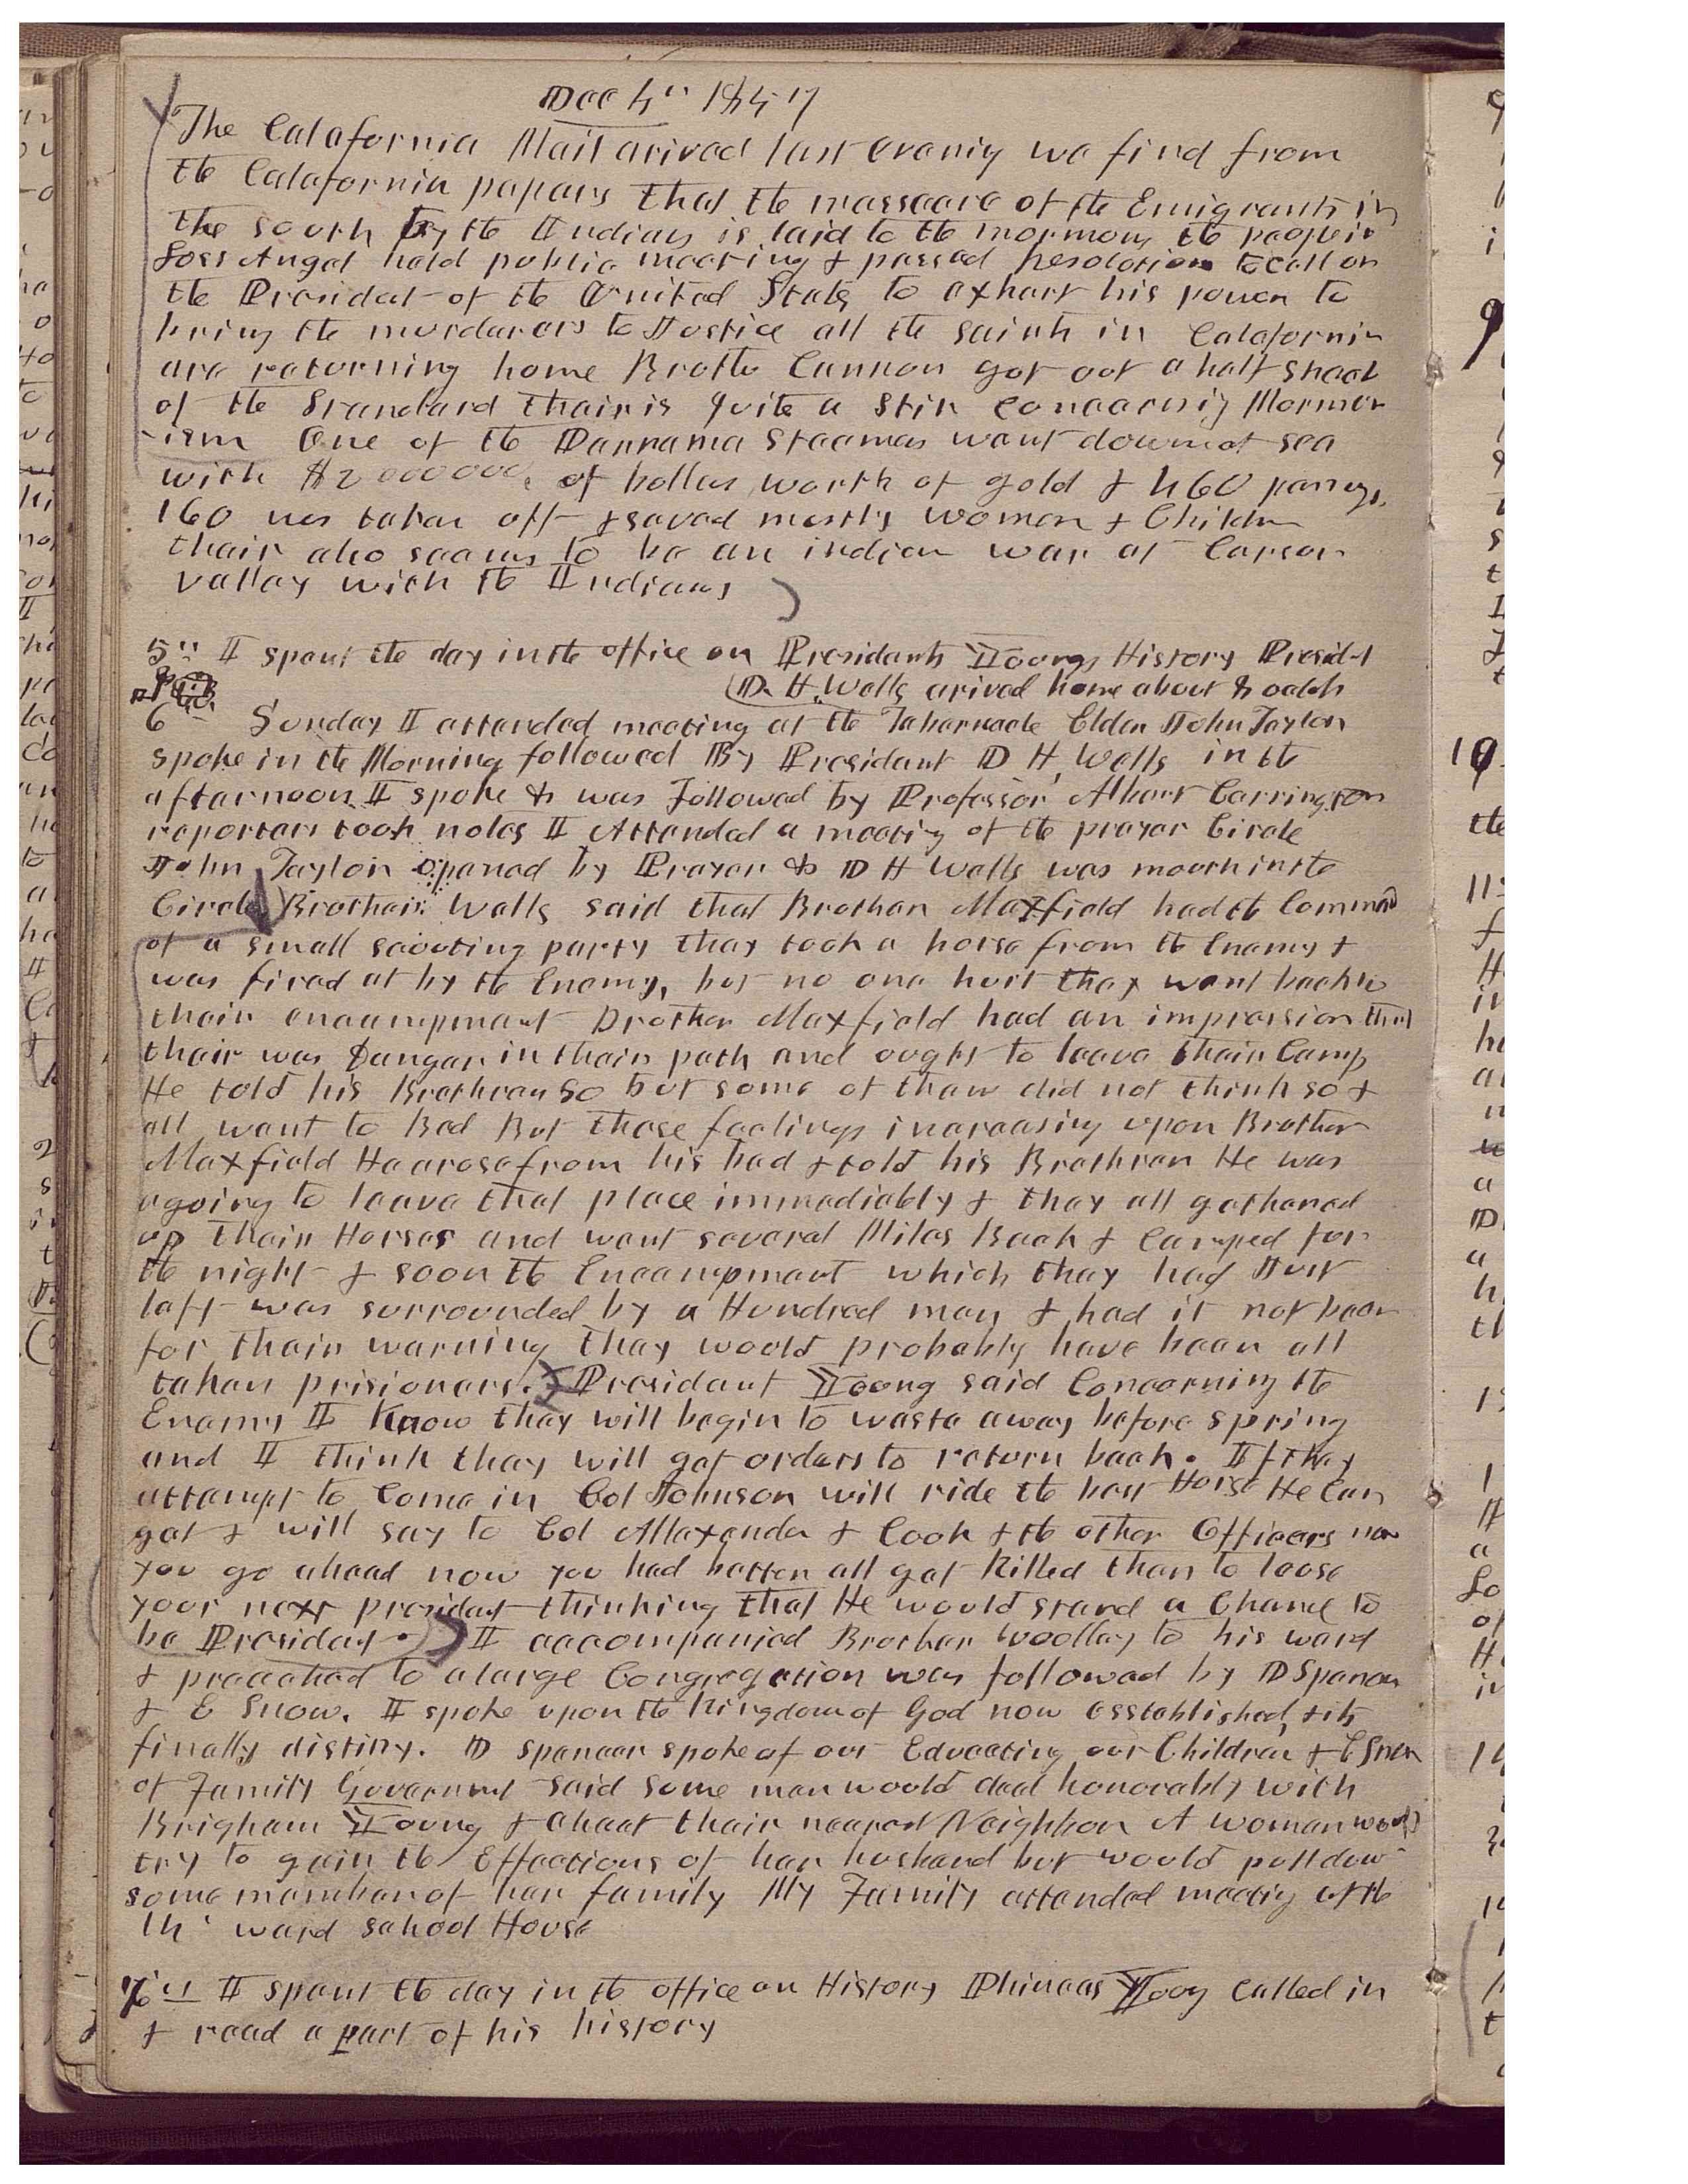 Dec 4" 1857
The Calafornia Mail arived last evenig we find from
the Calafornia papers that the massacre of the Emigrants in
the south by the Indians is laid to the mormons the people in
Loss Angel held public meeting & passed Resolotion to call on
the President of the United States to exhart his power to
bring the murderers to Justice all the saints in Calafornia
are returning home Brother Cannon got out a half sheet
of the Standard thair is quite a stir concernig Mormon
-ism One of the Pannama steamers went down at sea
with $2000000, of dollars worth of gold & 460 passengs.
160 was taken off & saved mostly women & Children
thair also seems to be an indian war at Carson
valley with the Indians
5" I spent the day in the office on Presidents Youngs History Presidet
D. H. Wells arived home about 8 oclok
6 Sunday I attended meeting at the Tabernacle Elder John Taylor
spoke in the Morning followed By President D H. Wells in the
afternoon I spoke & was Followed by Professor Albert Carrington
reporters took notes I Attended a meetig of the prayer Circle
John Taylor opened by Prayer & D H Wells was mouth in the
Circle Brother Wells said that Brother Maxfield had the Command
of a small scouting party they took a horse from the Enemy &
was fired at by the Enemy, but no one hurt they went back to
thair encampment Brother Maxfield had an impression that
thair was Danger in thair path and ought to leave thair Camp
He told his Brethren so but some of them did not think so &
all went to Bed But those feelings increasing upon Brother
Maxfield He arose from his bed & told his Brethren He was
agoing to leave that place immediately & they all gathered
up thair Horses and went several Miles Back & Camped for
the night & soon the Encampment which they had Just
left was surrounded by a Hundred men & had it not been
for thair warning they would probably have been all
taken prisioners. President Young said Concerning the
Enemy I Know they will begin to waste away before spring
and I think they will get orders to return back. If they
attempt to Come in Col Johnson will ride the best Horse He Can
get & will say to Col Alexander & Cook & the other Officers now
you go ahead now you had better all get Killed than to loose
your next president thinking that He would stand a Chance to
be President. I accompanied Brother Woolley to his ward
& preached to a large Congregation was followed by D Spencer
& E Snow. I spoke upon the Kingdom of God now esstablished, & its
finally distiny. D Spencer spoke of our Educating our Children & E Snow
of Family Government said some men would deal honorably with
Brigham Young & cheat thair nearest Neighbor A woman would
try to gain the Effections of her husband but would pull down
some member of her family My Family attended meetig at the
14 ward school House
7" I spent the day in the office on History Phineas Young Called in
& read a part of his history